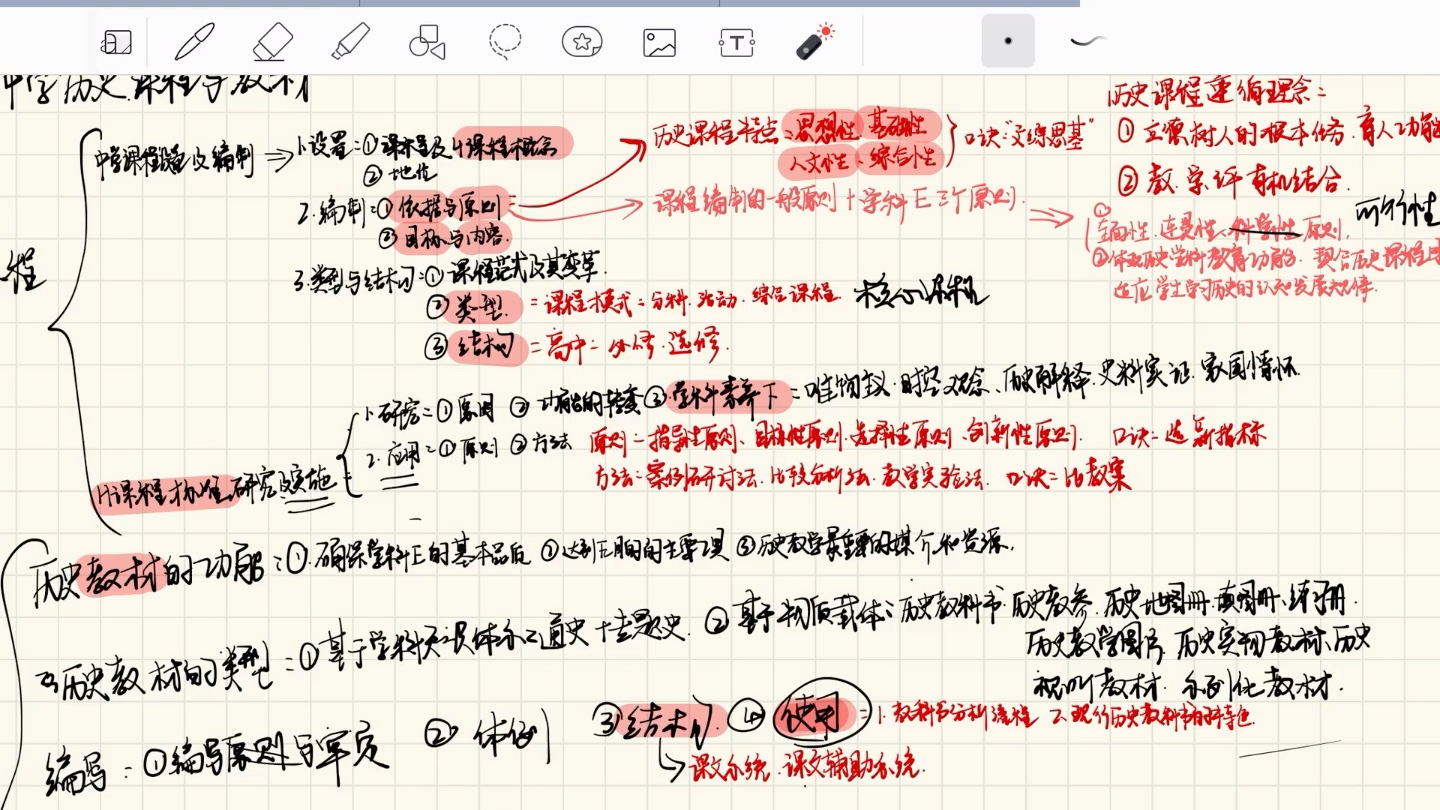 中学历史课程与教材
历史课程建构理念:
①立德树人的根本任务.育人功能
②教.学.评有机结合.
可行性
中学课程设置及编制 ⇒ 1.设置:①课程及H课程概念
②地位
历史课程特点:思想性.基础性
人文性、综合性
口诀"文综思基"
2.编制:①依据与原则
②目标与内容.
课程编制的一般原则+学科E三个原则.
①全面性.连贯性、科学性原则.
②体现历史学科教育功能.
适应学生学习历史的认知发展规律.
程
3.类型与结构:①课程范式及其变革.
②类型.=课程模式=分科.活动.综合课程.
③结构=高中=必修.选修.
H课程标准研究及实施
1.研究:①原因 ②功能的转变 ③学科素养下=唯物主义.时空观念、历史解释.史料实证.家国情怀
2.应用:①原则 ②方法 原则=指导性原则、目标性原则.选择性原则、创新性原则. 口诀=选新指标
方法:案例研讨法.比较分析法.教学实验法. 口诀=比教案
历史教材的功能:①.确保学科E的基本品质 ②达到E目的的主要工具 ③历史教学最重要的媒介和资源.
历史教材的类型:①基于学科知识体系:通史+主题史.②基于物质载体:历史教科书.历史教参.历史地图册.填图册、练习册.
历史教学图片.历史实物教材、历史
视听教材.系列化教材.
编写:①编写原则与 ②体例 ③结构.④使用=1.教科书分析流程 2.现行历史教科书的特色
↳课文系统.课文辅助系统.